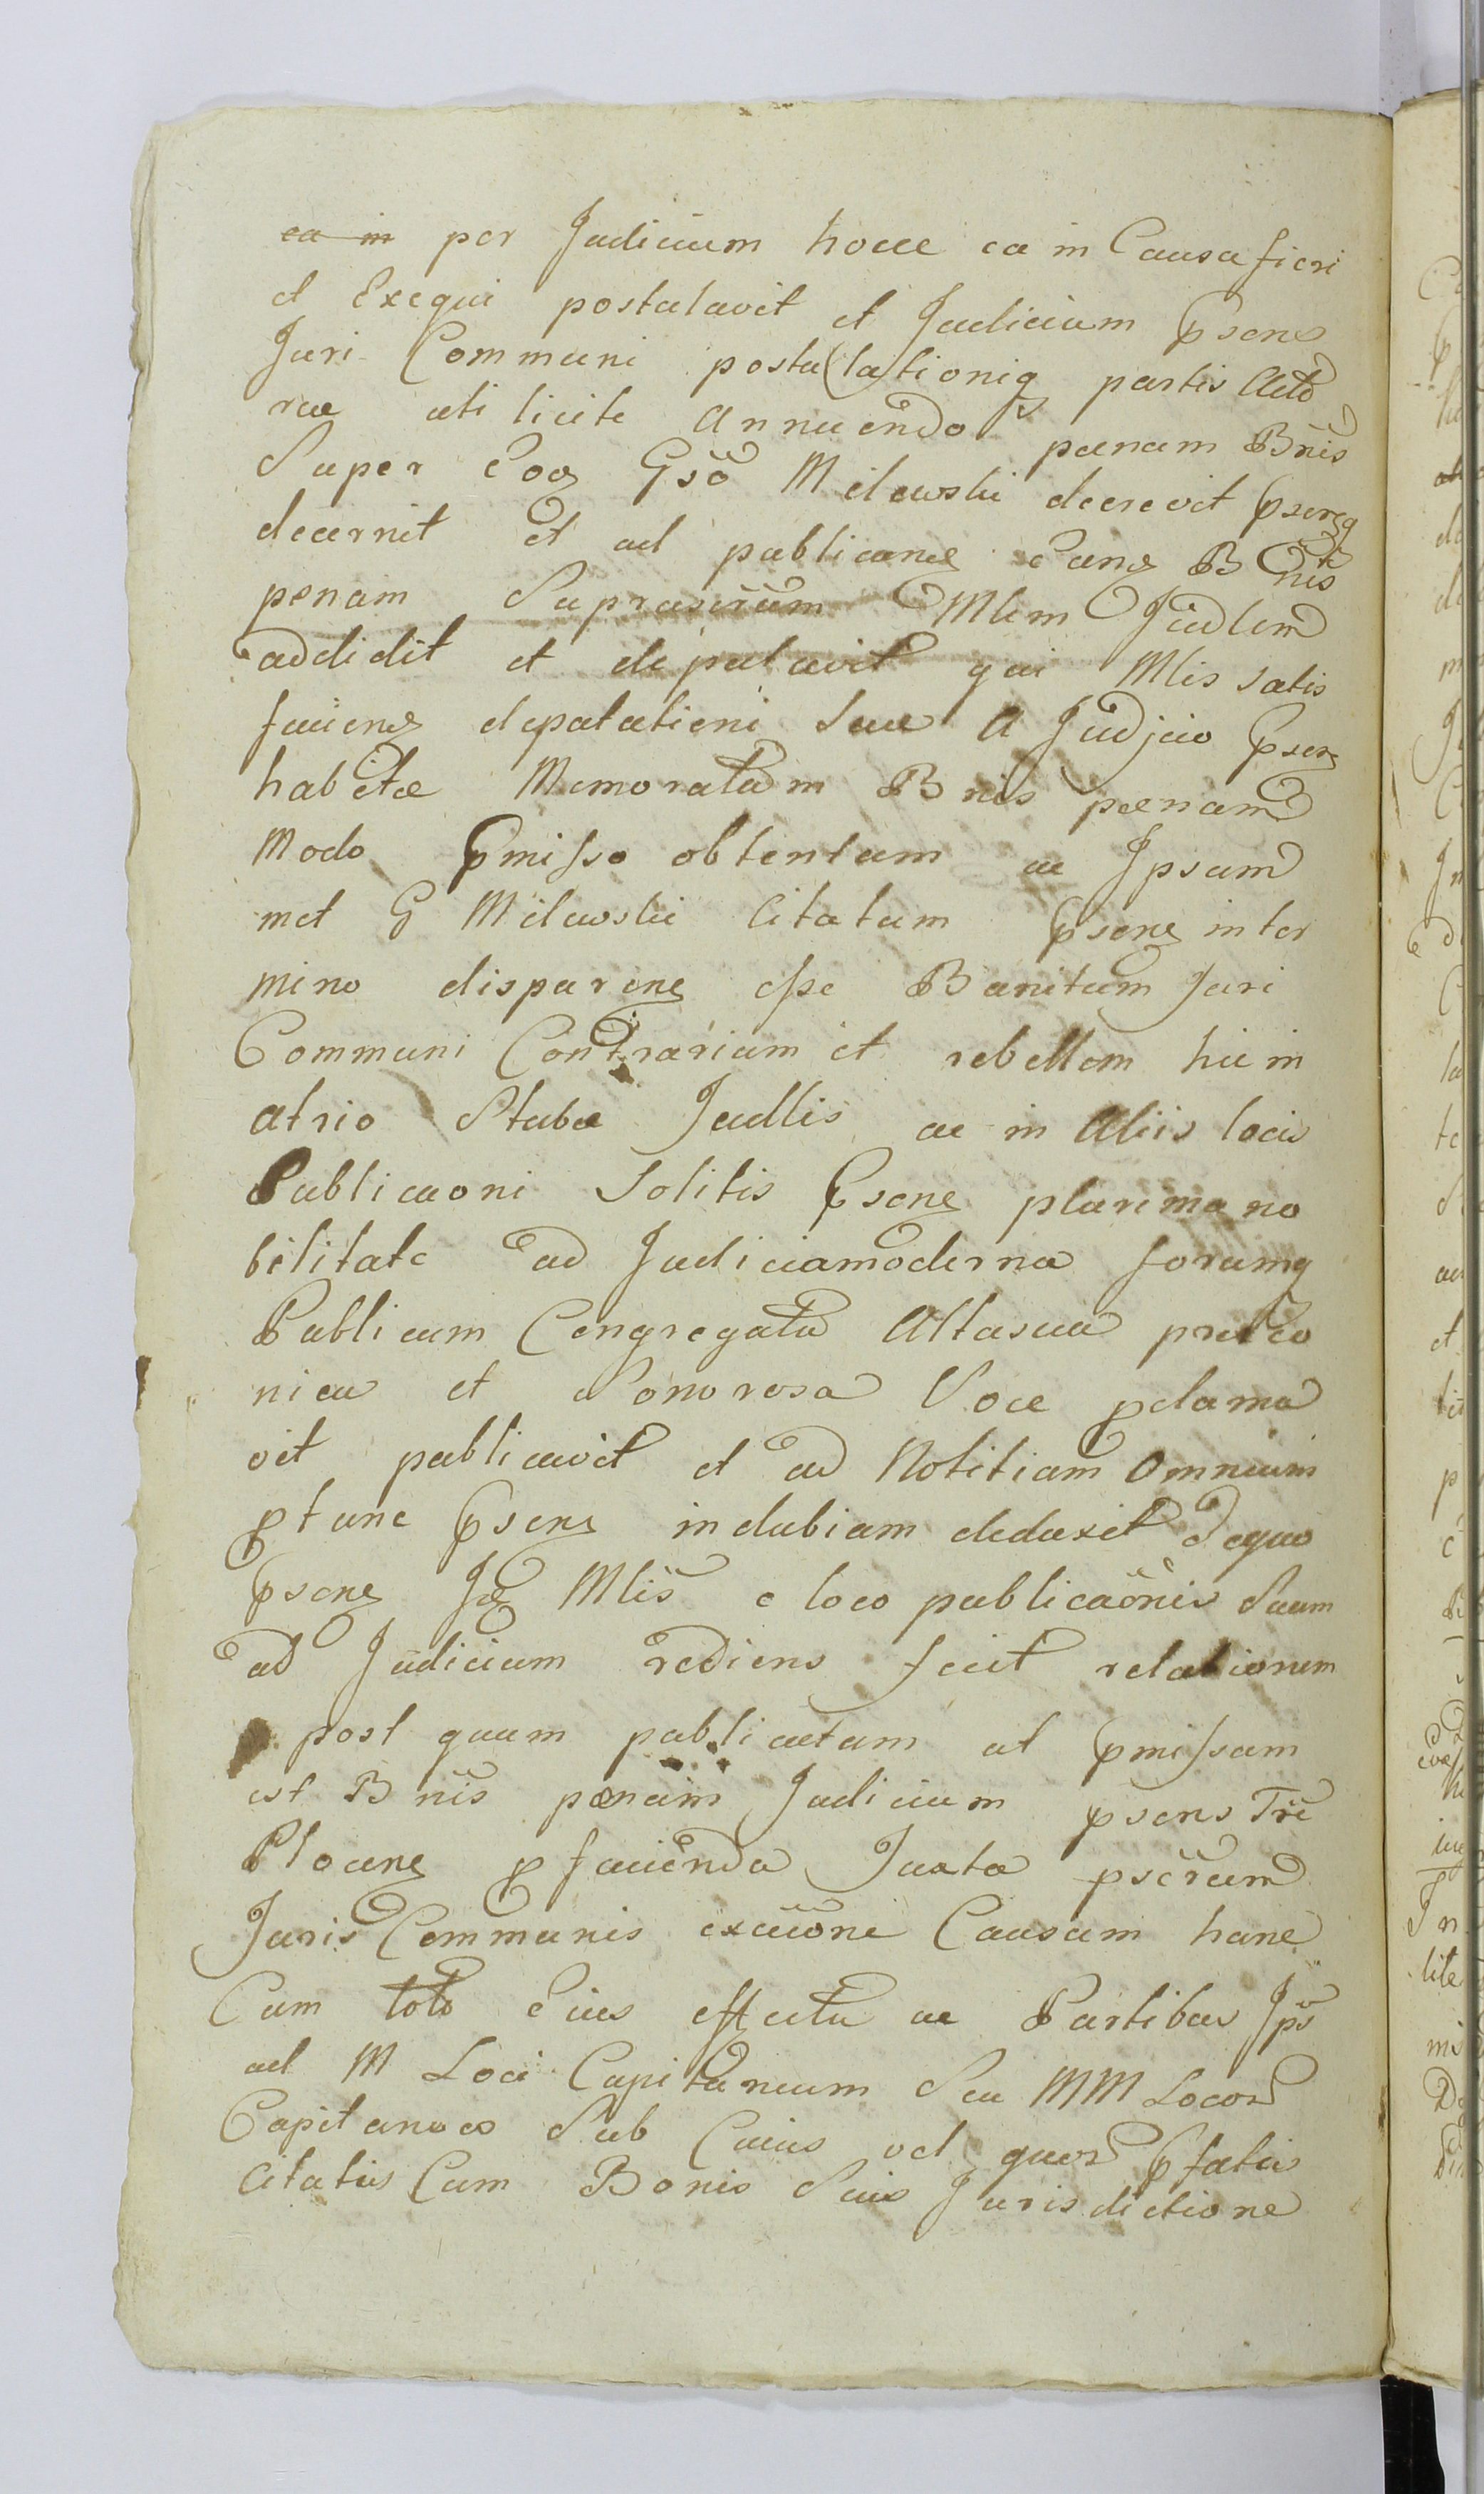 ea in per Judicium hocce ea in Causa fieri
et Exequi postulavit et Judicium Psens
Juri Communi postulationiq partis Acto
rae uti licite annuendo paenam Bnis
Super Eoq Gso Milewski decrevit Pserq
decernit Et ad publicanq eanq B nis
penam Suprascrum Mlem Judlem
addidit et deputavit qui Mlis satis
faciens deputationi suae a Judjcio Psenq
habitae Memoratam Bnis paenam
Modo Pmisso obtentam ac Ipsum
met G Milewski Citatum Psenq in ter
mino disparenq esse Banitum Juri
Communi Contrarium et rebellem hic in
atrio Stubae Judlis ac in Aliis locis
Publicaoni Solitis Psenq plurima no
bilitate ad Judicia moderna forumq
Publicum Congregata Alta sua preco
nica et Sonorosa Voce pclama
vit publicavit et ad Notitiam Omnium
ptunc Psenq indubiam deduxit De quo
Psenq Jq Mlis e loco publicaonis Suum
ad Judicium rediens fecit relationem
post quam publicatam ut Pmissum
est Bnis penam Judicium psens Tre
Plocenq pfacienda Juxta pscrum
Juris Communis exaone Causam hanc
Cum toto Eius effectu ac Partibus Ips
ad M Loci Capitaneum Seu MM Locor
Capitaneos Sub Cuius vel quor Pfatus
Citatus Cum Bonis Suis Jurisdictione